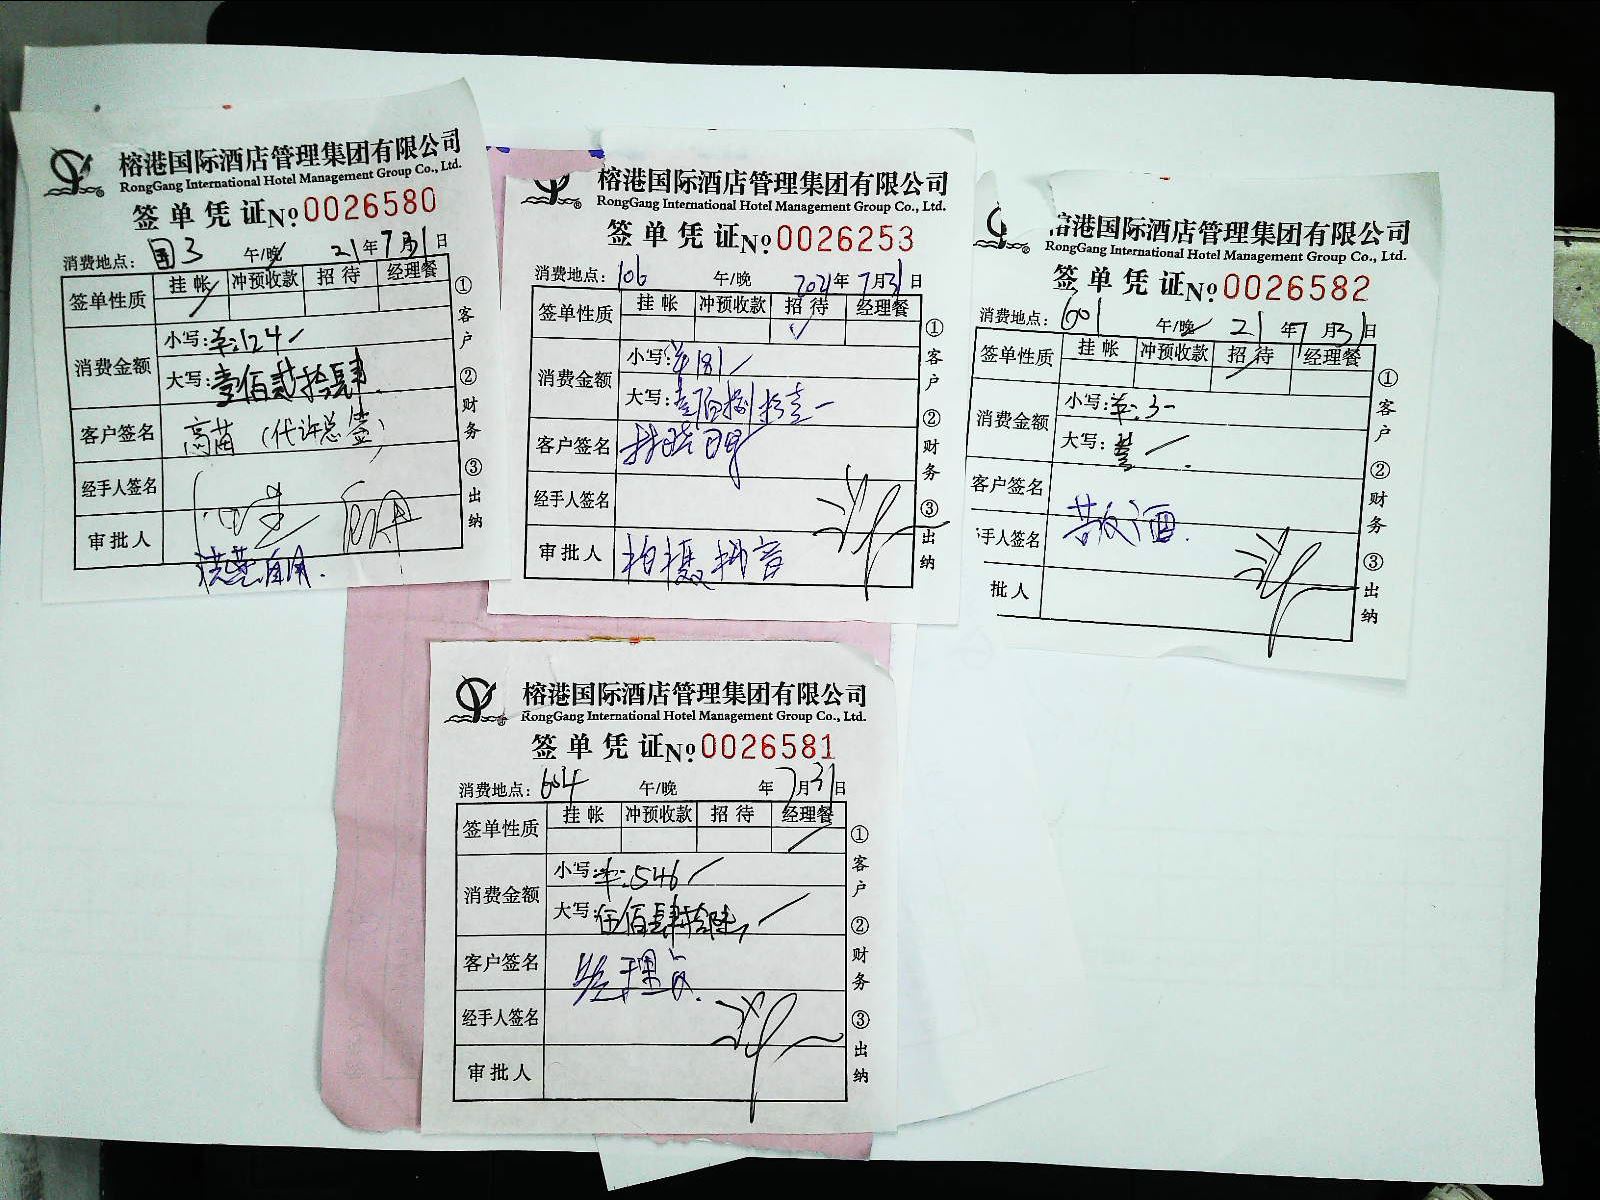 榕港国际酒店管理集团有限公司
RongGang International Hotel Management Group Co., Ltd.
签单凭证 No 0026580
消费地点： 国3 午/晚 21年7月31日
签单性质 挂帐 冲预收款 招待 经理餐
消费金额 小写：¥:124
大写：壹佰贰拾肆
客户签名 高苗（代许总签）
经手人签名
审批人
①客户 ②财务 ③出纳
榕港国际酒店管理集团有限公司
RongGang International Hotel Management Group Co., Ltd.
签单凭证 No 0026253
消费地点： 106 午/晚 2021年7月31日
签单性质 挂帐 冲预收款 招待 经理餐
消费金额 小写：¥181
大写：壹佰捌拾壹
客户签名 林晓明
经手人签名
审批人 拍摄抖音
①客户 ②财务 ③出纳
榕港国际酒店管理集团有限公司
RongGang International Hotel Management Group Co., Ltd.
签单凭证 No 0026582
消费地点： 601 午/晚 21年7月31日
签单性质 挂帐 冲预收款 招待 经理餐
消费金额 小写：¥:3
大写：叁
客户签名
手人签名 敬酒
批人
①客户 ②财务 ③出纳
榕港国际酒店管理集团有限公司
RongGang International Hotel Management Group Co., Ltd.
签单凭证 No 0026581
消费地点： 604 午/晚 年7月31日
签单性质 挂帐 冲预收款 招待 经理餐
消费金额 小写：¥:546
大写：伍佰肆拾陆
客户签名 经理餐
经手人签名
审批人
①客户 ②财务 ③出纳